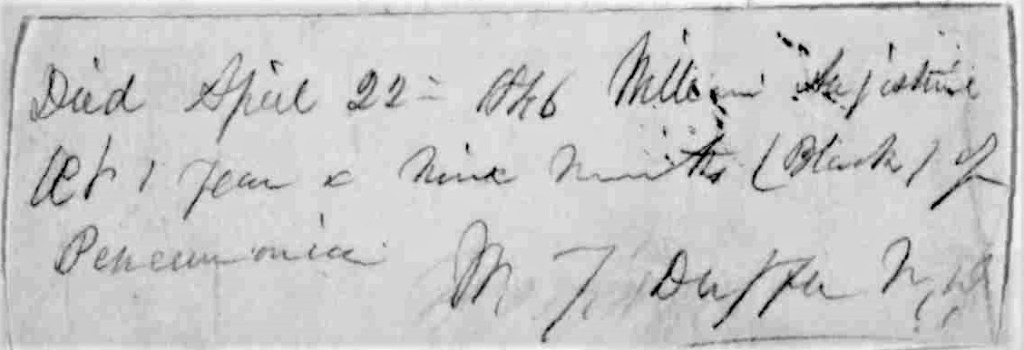 Died April 22= 1846 William Augustine
Aet 1 year & nine months (Black) of
Pneumonia M J Duffee M.D.